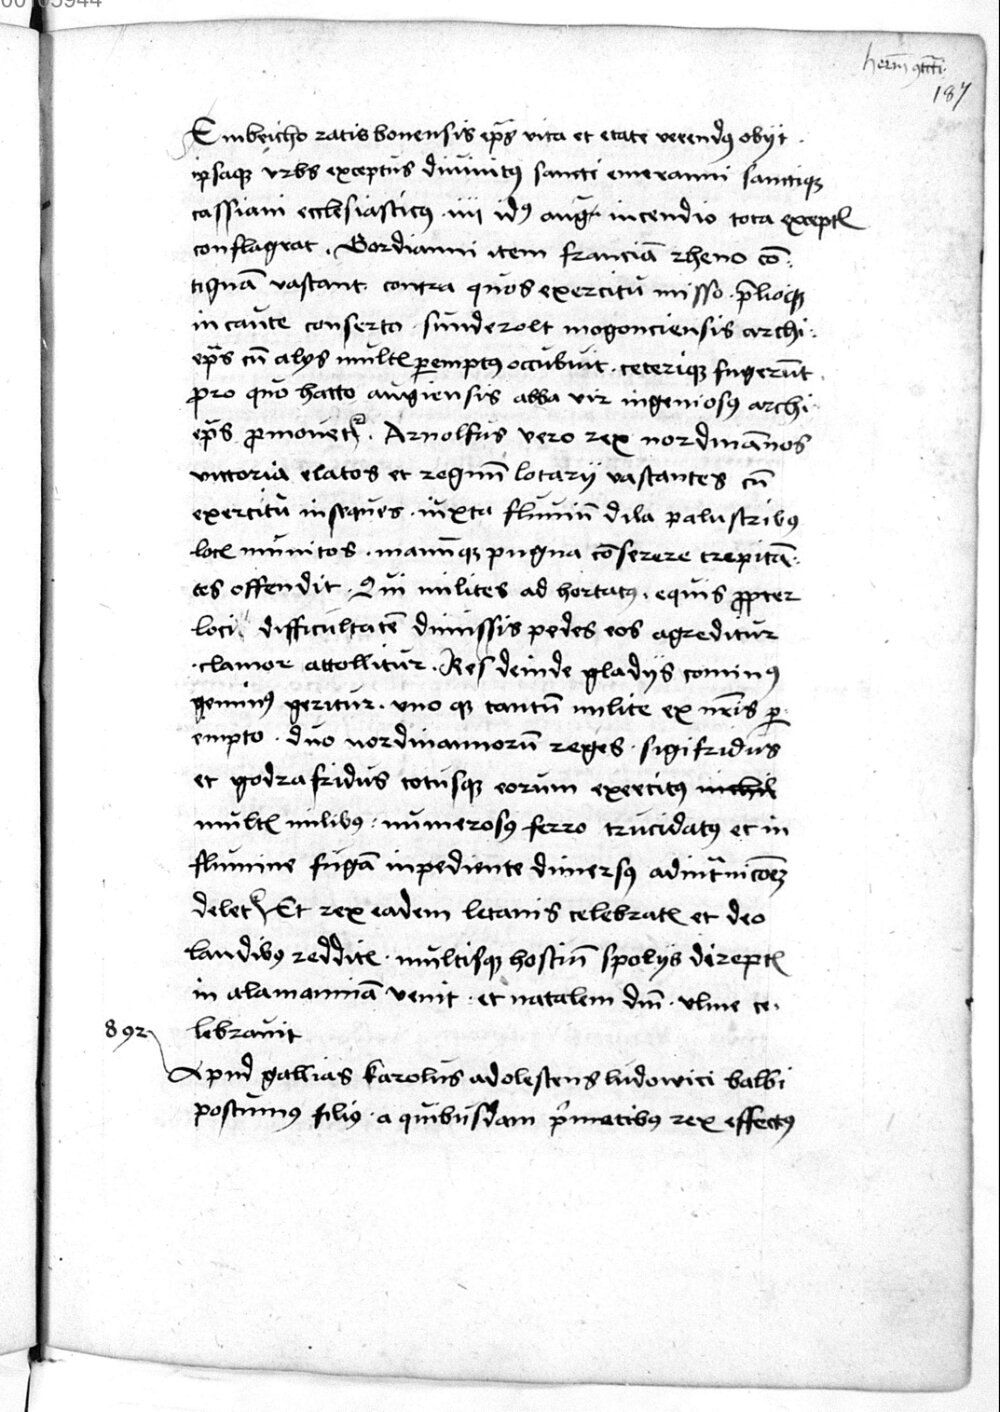 herm̄ 9tcti.
187
Embricho ratisbonensis ep̄s vita et etate verendꝰ obijt .
ipsaqꝫ vrbs exceptis diuinitꝰ sancti emeranni sanctiqꝫ
cassiani ecclesiasticꝰ iiii idꝰ aug incendio tota exceptꝭ
conflagrat . Nordianni item franciā rheno cō:
tiguā vastant contra quos exercitū misso . p̄lioqꝫ
incaute conserto . sunderolt mogonciensis archi:
ep̄s cū alijs multꝭ peremptꝰ occubuit . ceteriqꝫ fugerūt .
pro quo hatto augiensis abba vir ingeniosꝰ archi
ep̄s promouetr̉ . Arnolfus vero rex nordmānos
victoria elatos et regnū lotarij vastantes cū
exercitū insequēs . iuxta fluuiū dila palustribꝰ
locꝭ munitos . manūqꝫ pugna cōserere trepitā:
tes offendit . Qui milites ad hortatꝰ . equis ꝓpter
loci difficultatē dimissis pedes eos agreditur
. clamor attollitur . Res deinde gladijs cominꝰ
geminꝰ geritur . vno qꝫ tantū milite ex nr̄is ꝑ
empto . duo nordmannorū reges . sigifridus
et godrafridus totusqꝫ eorum exercitꝰ nichil
multꝭ milibꝰ : numerosꝰ ferro trucidatꝰ et in
flumine fugā inpediente dimersꝰ
delet̉ Et rex eadem letanis celebratꝭ et deo
laudibꝰ redditꝭ . multisqꝫ hostiū spolijs direptꝭ
in alamanniā venit . et natalem dm̄ . vlme ce.
892 lebrauit
Apud gallias karolus adolescens ludowici balbi
postumꝰ filiꝰ . a quibusdam p̓matibꝰ rex effectꝰ